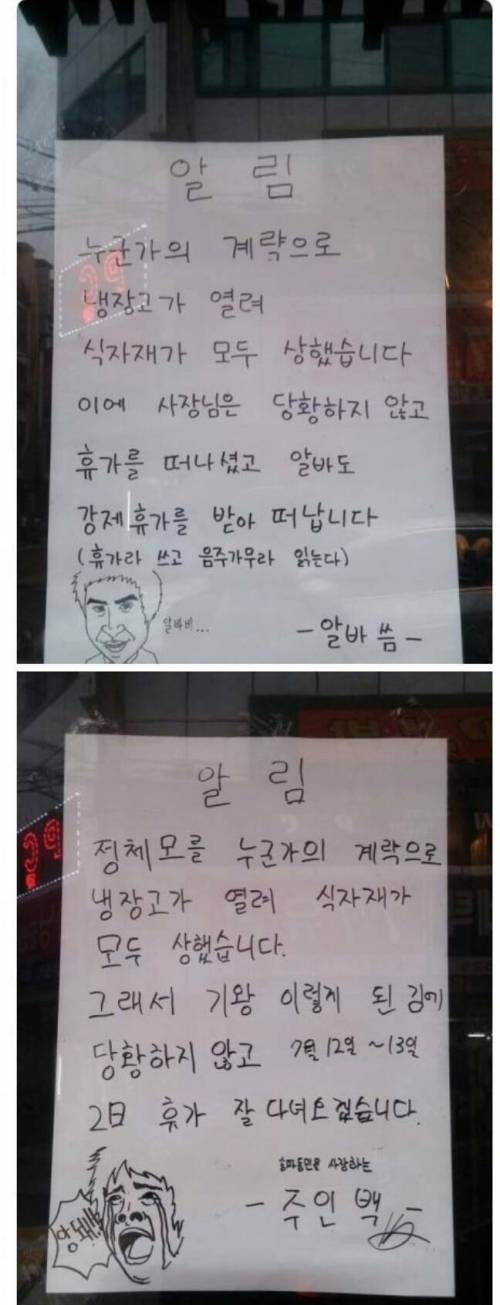 알 림
누군가의 계략으로
냉장고가 열려
식자재가 모두 상했습니다
이에 사장님은 당황하지 않고
휴가를 떠나셨고 알바도
강제 휴가를 받아 떠납니다
(휴가라 쓰고 음주가무라 읽는다)
알바비...
- 알바 씀 -
알 림
정체 모를 누군가의 계락으로
냉장고가 열려 식자재가
모두 상했습니다.
그래서 기왕 이렇게 된 김에
당황하지 않고 7월 12일 ~13일
2日 휴가 잘 다녀오겠습니다.
사랑하는
- 주인 백 -
앙돼!!